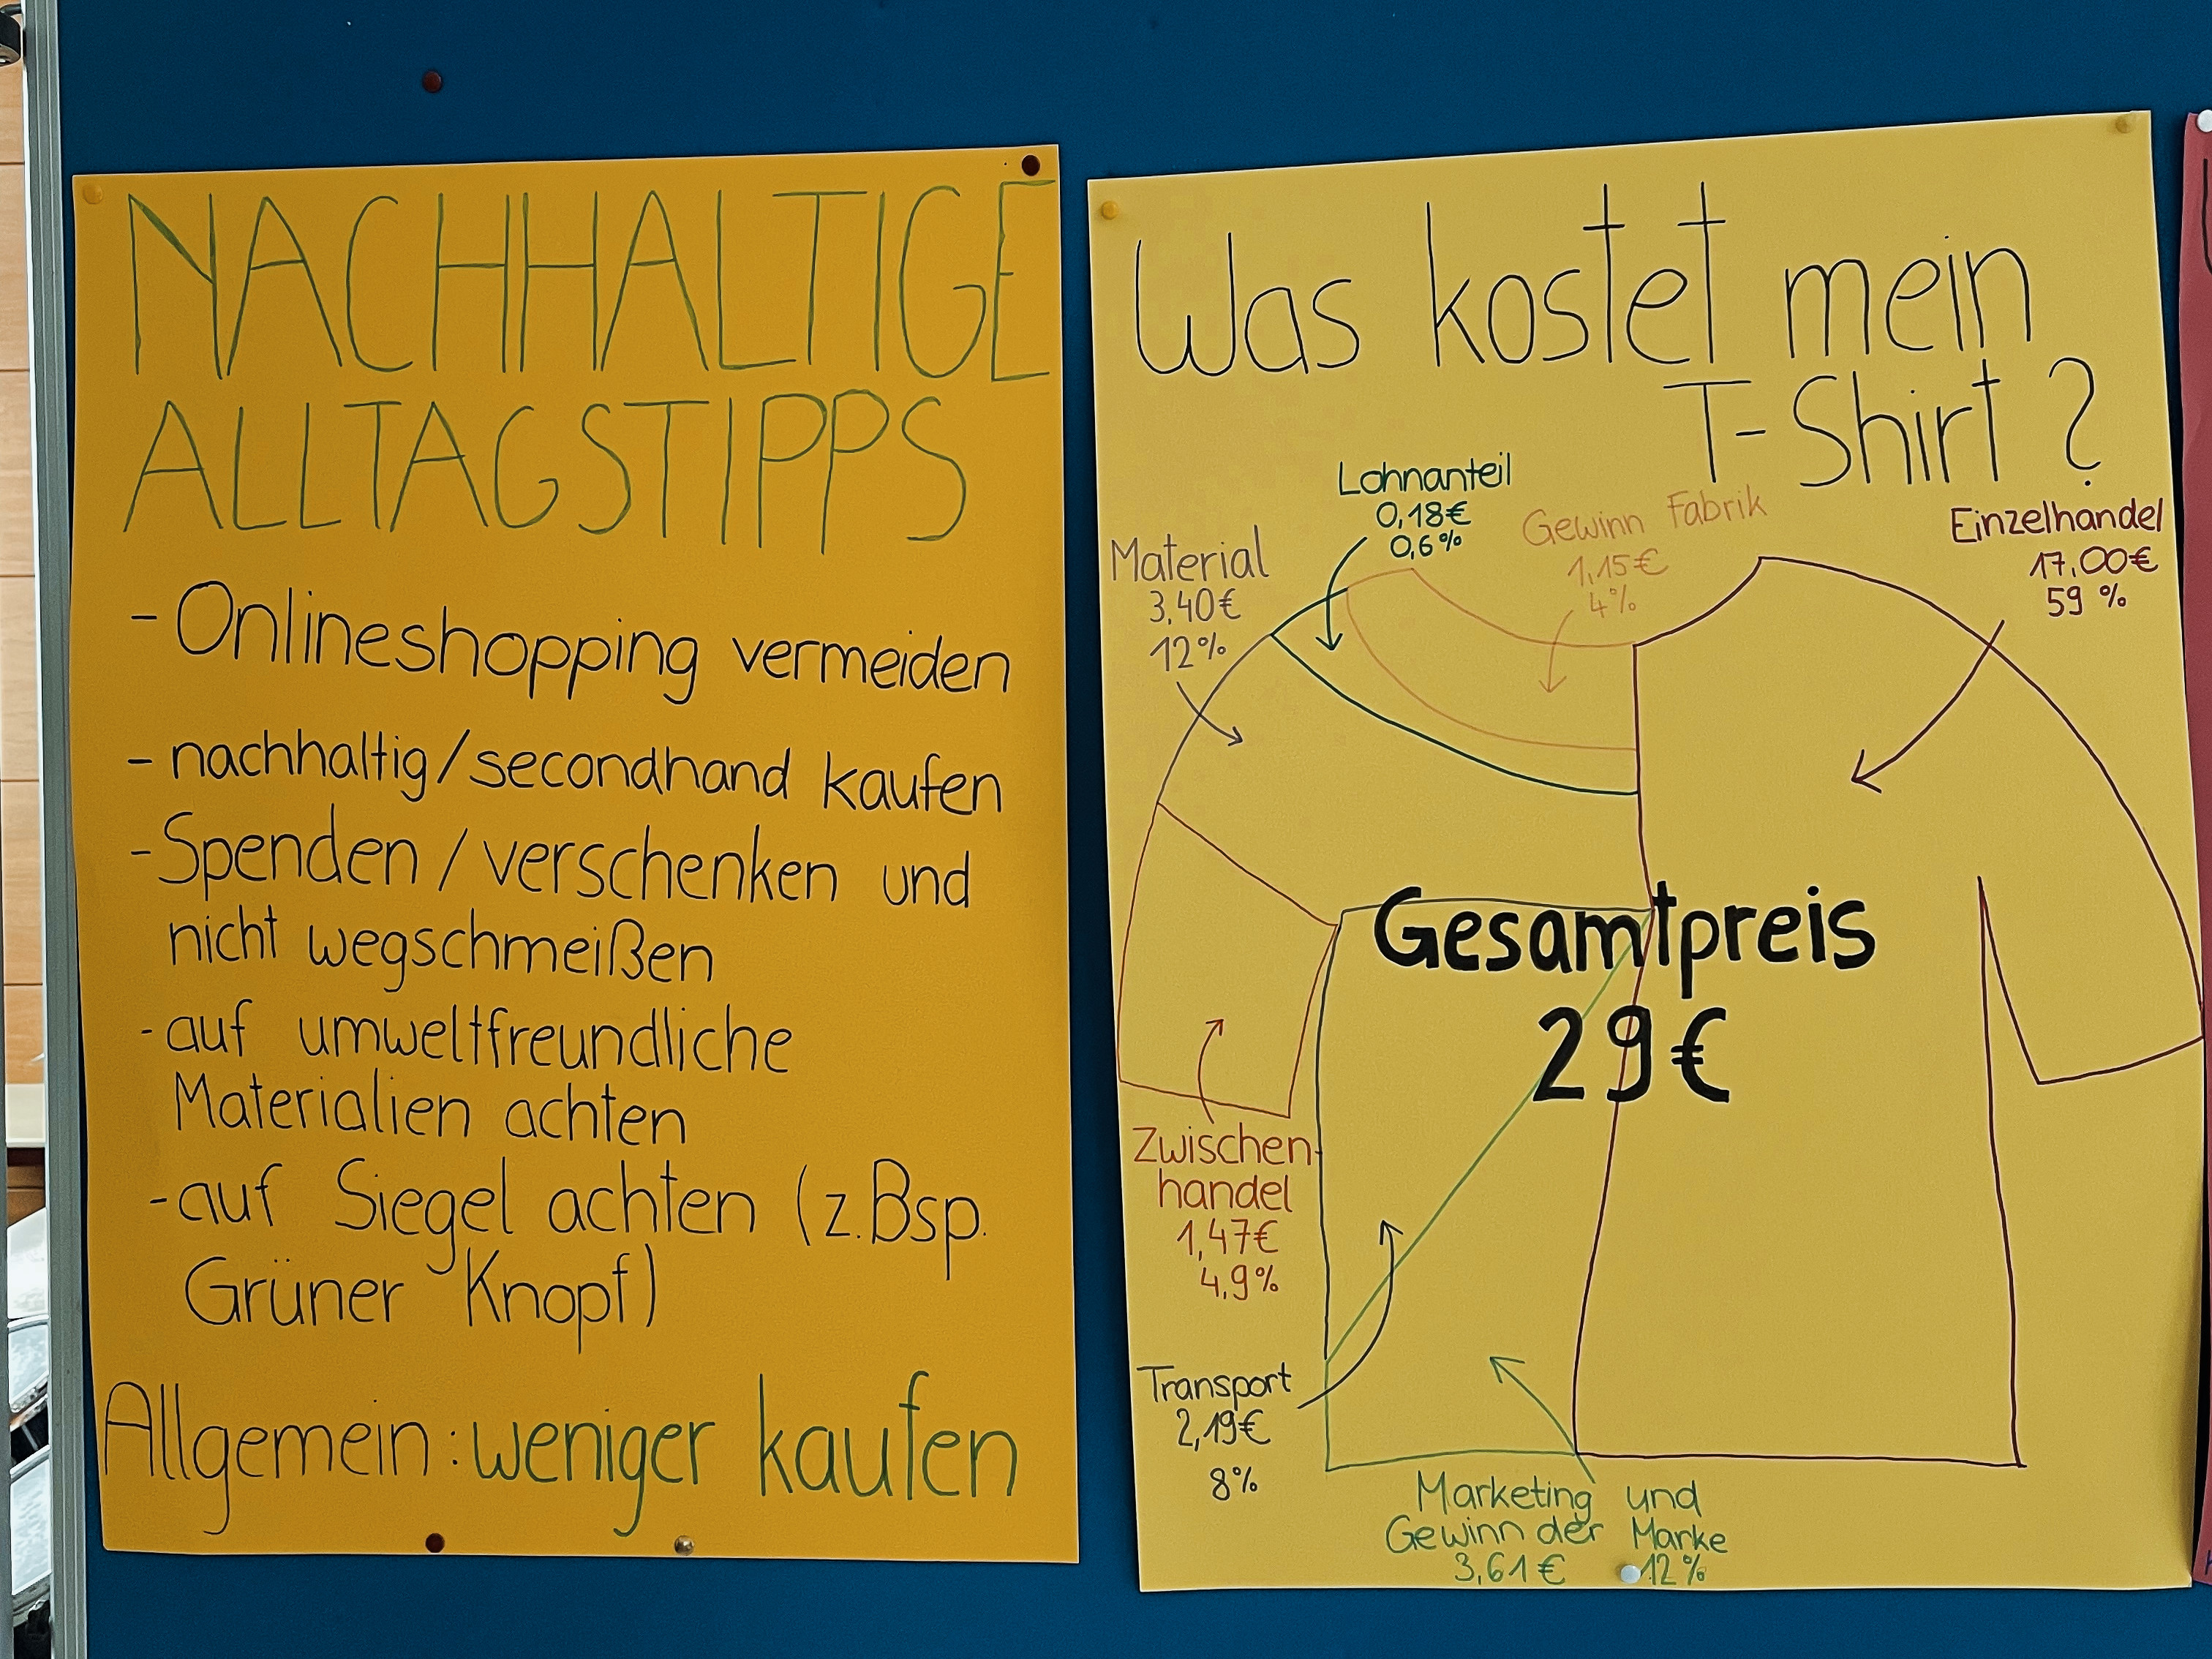 NACHHALTIGE
ALLTAGSTIPPS
- Onlineshopping vermeiden
- nachhaltig/secondhand kaufen
- Spenden / verschenken und
nicht wegschmeißen
- auf umweltfreundliche
Materialien achten
- auf Siegel achten (z.Bsp.
Grüner Knopf)
Allgemein: weniger kaufen
Was kostet mein
T-Shirt?
Lohnanteil
0,18€
0,6%
Gewinn Fabrik
1,15€
4%
Einzelhandel
17,00€
59 %
Material
3,40€
12%
Gesamtpreis
29€
Zwischen-
handel
1,47€
4,9%
Transport
2,19€
8%
Marketing und
Gewinn der Marke
3,61€ 12%